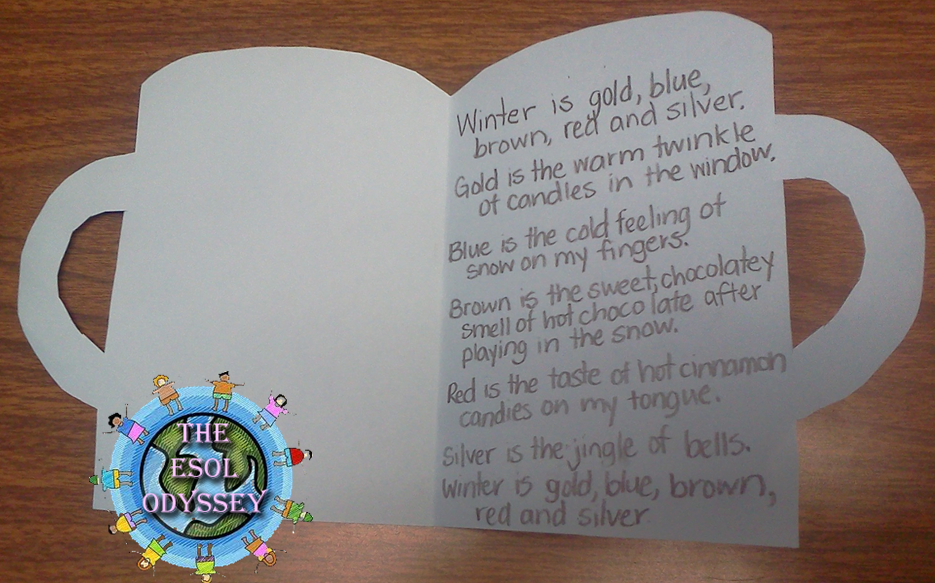 Winter is gold, blue,
brown, red and silver.
Gold is the warm twinkle
of candles in the window.
Blue is the cold feeling of
snow on my fingers.
Brown is the sweet, chocolatey
smell of hot chocolate after
playing in the snow.
Red is the taste of hot cinnamon
candies on my tongue.
Silver is the jingle of bells.
Winter is gold, blue, brown,
red and silver
THE
ESOL
ODYSSEY